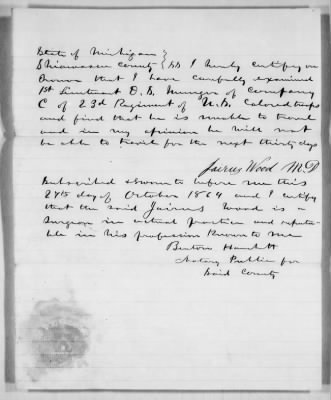 State of Michigan }
Shiawassee County } SS I hereby certify on
that I have carefully examined
1st Lieutenant D. B. Munger of Company
C of 23d Regiment of U.S. Colored troops
and find that he is unable to travel
and in my opinion he will not
be able to travel for the next thirty days
Jairus Wood M.D
Subscribed & sworn to before me this
24th day of October 1864 and I certify
that the said Jairus Wood is a
Surgeon in actual practice and reputa-
ble in his profession Known to me
Notary Public for
Said County